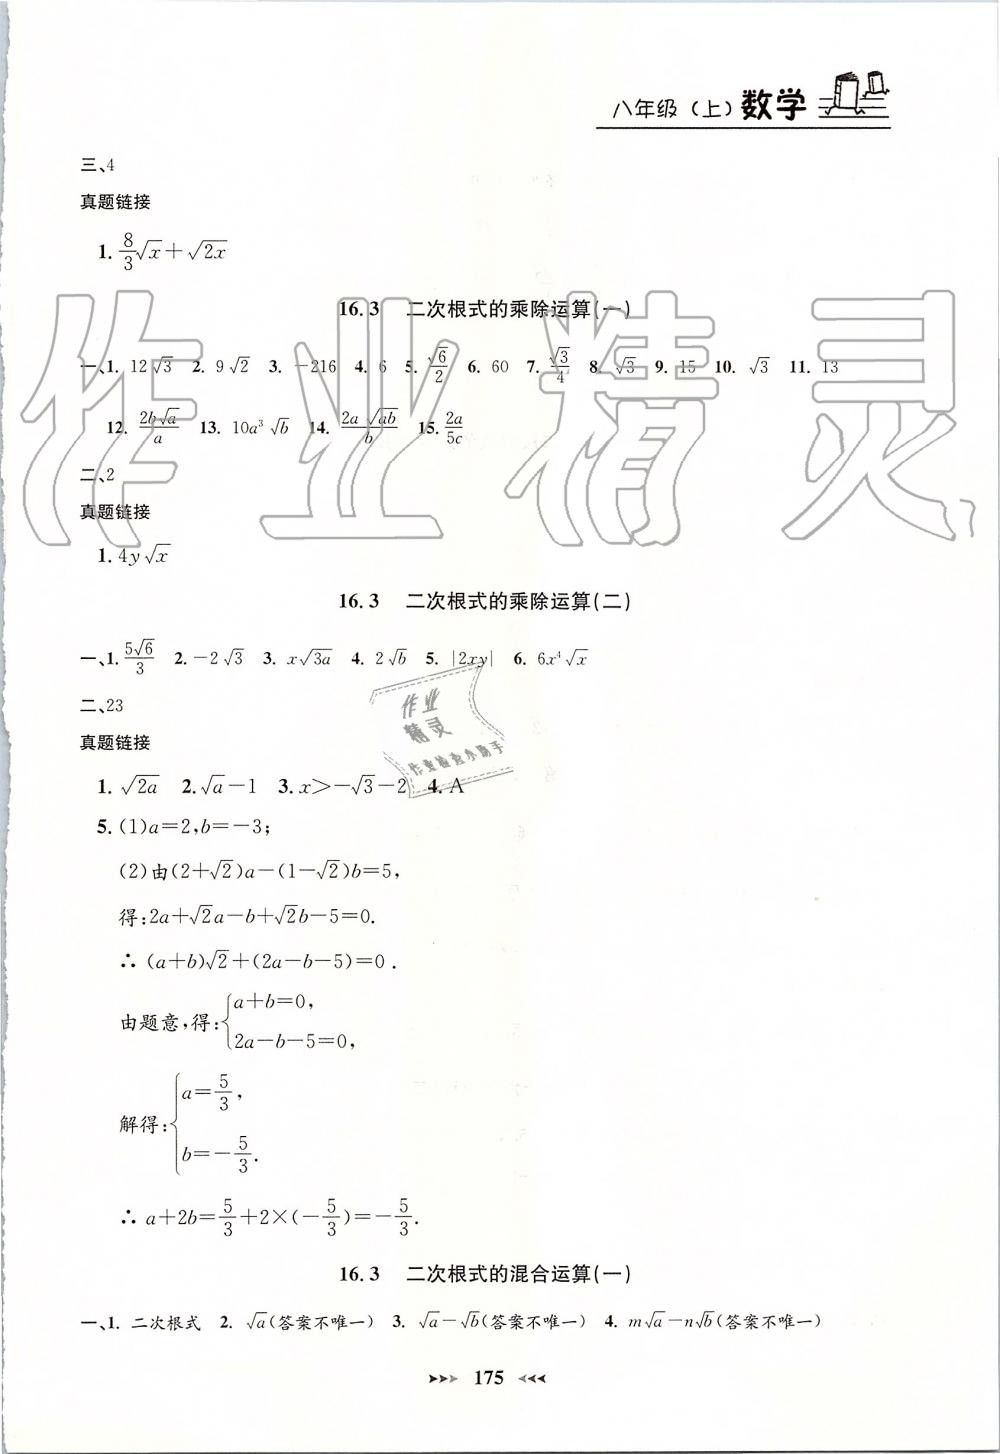 八年级（上）数学
三、4
真题链接
1. \frac{8}{3}√x＋√2x
16.3 二次根式的乘除运算(一)
一、1. 12√3 2. 9√2 3. －216 4. 6 5. \frac{√6}{2} 6. 60 7. \frac{√3}{4} 8. √3 9. 15 10. √3 11. 13
12. \frac{2b√a}{a} 13. 10a³√b 14. \frac{2a√ab}{b} 15. \frac{2a}{5c}
二、2
真题链接
1. 4y√x
16.3 二次根式的乘除运算(二)
一、1. \frac{5√6}{3} 2. －2√3 3. x√3a 4. 2√b 5. |2xy| 6. 6x⁴√x
二、23
真题链接
1. √2a 2. √a－1 3. x＞－√3－2 4. A
5. (1)a＝2,b＝－3；
(2)由(2＋√2)a－(1－√2)b＝5,
得:2a＋√2a－b＋√2b－5＝0.
∴ (a＋b)√2＋(2a－b－5)＝0.
由题意,得:{a＋b＝0,
2a－b－5＝0,
解得:{a＝\frac{5}{3},
b＝－\frac{5}{3}.
∴ a＋2b＝\frac{5}{3}＋2×(－\frac{5}{3})＝－\frac{5}{3}.
16.3 二次根式的混合运算(一)
一、1. 二次根式 2. √a(答案不唯一) 3. √a－√b(答案不唯一) 4. m√a－n√b(答案不唯一)
175
作业精灵
作业
精灵
作业检查小助手